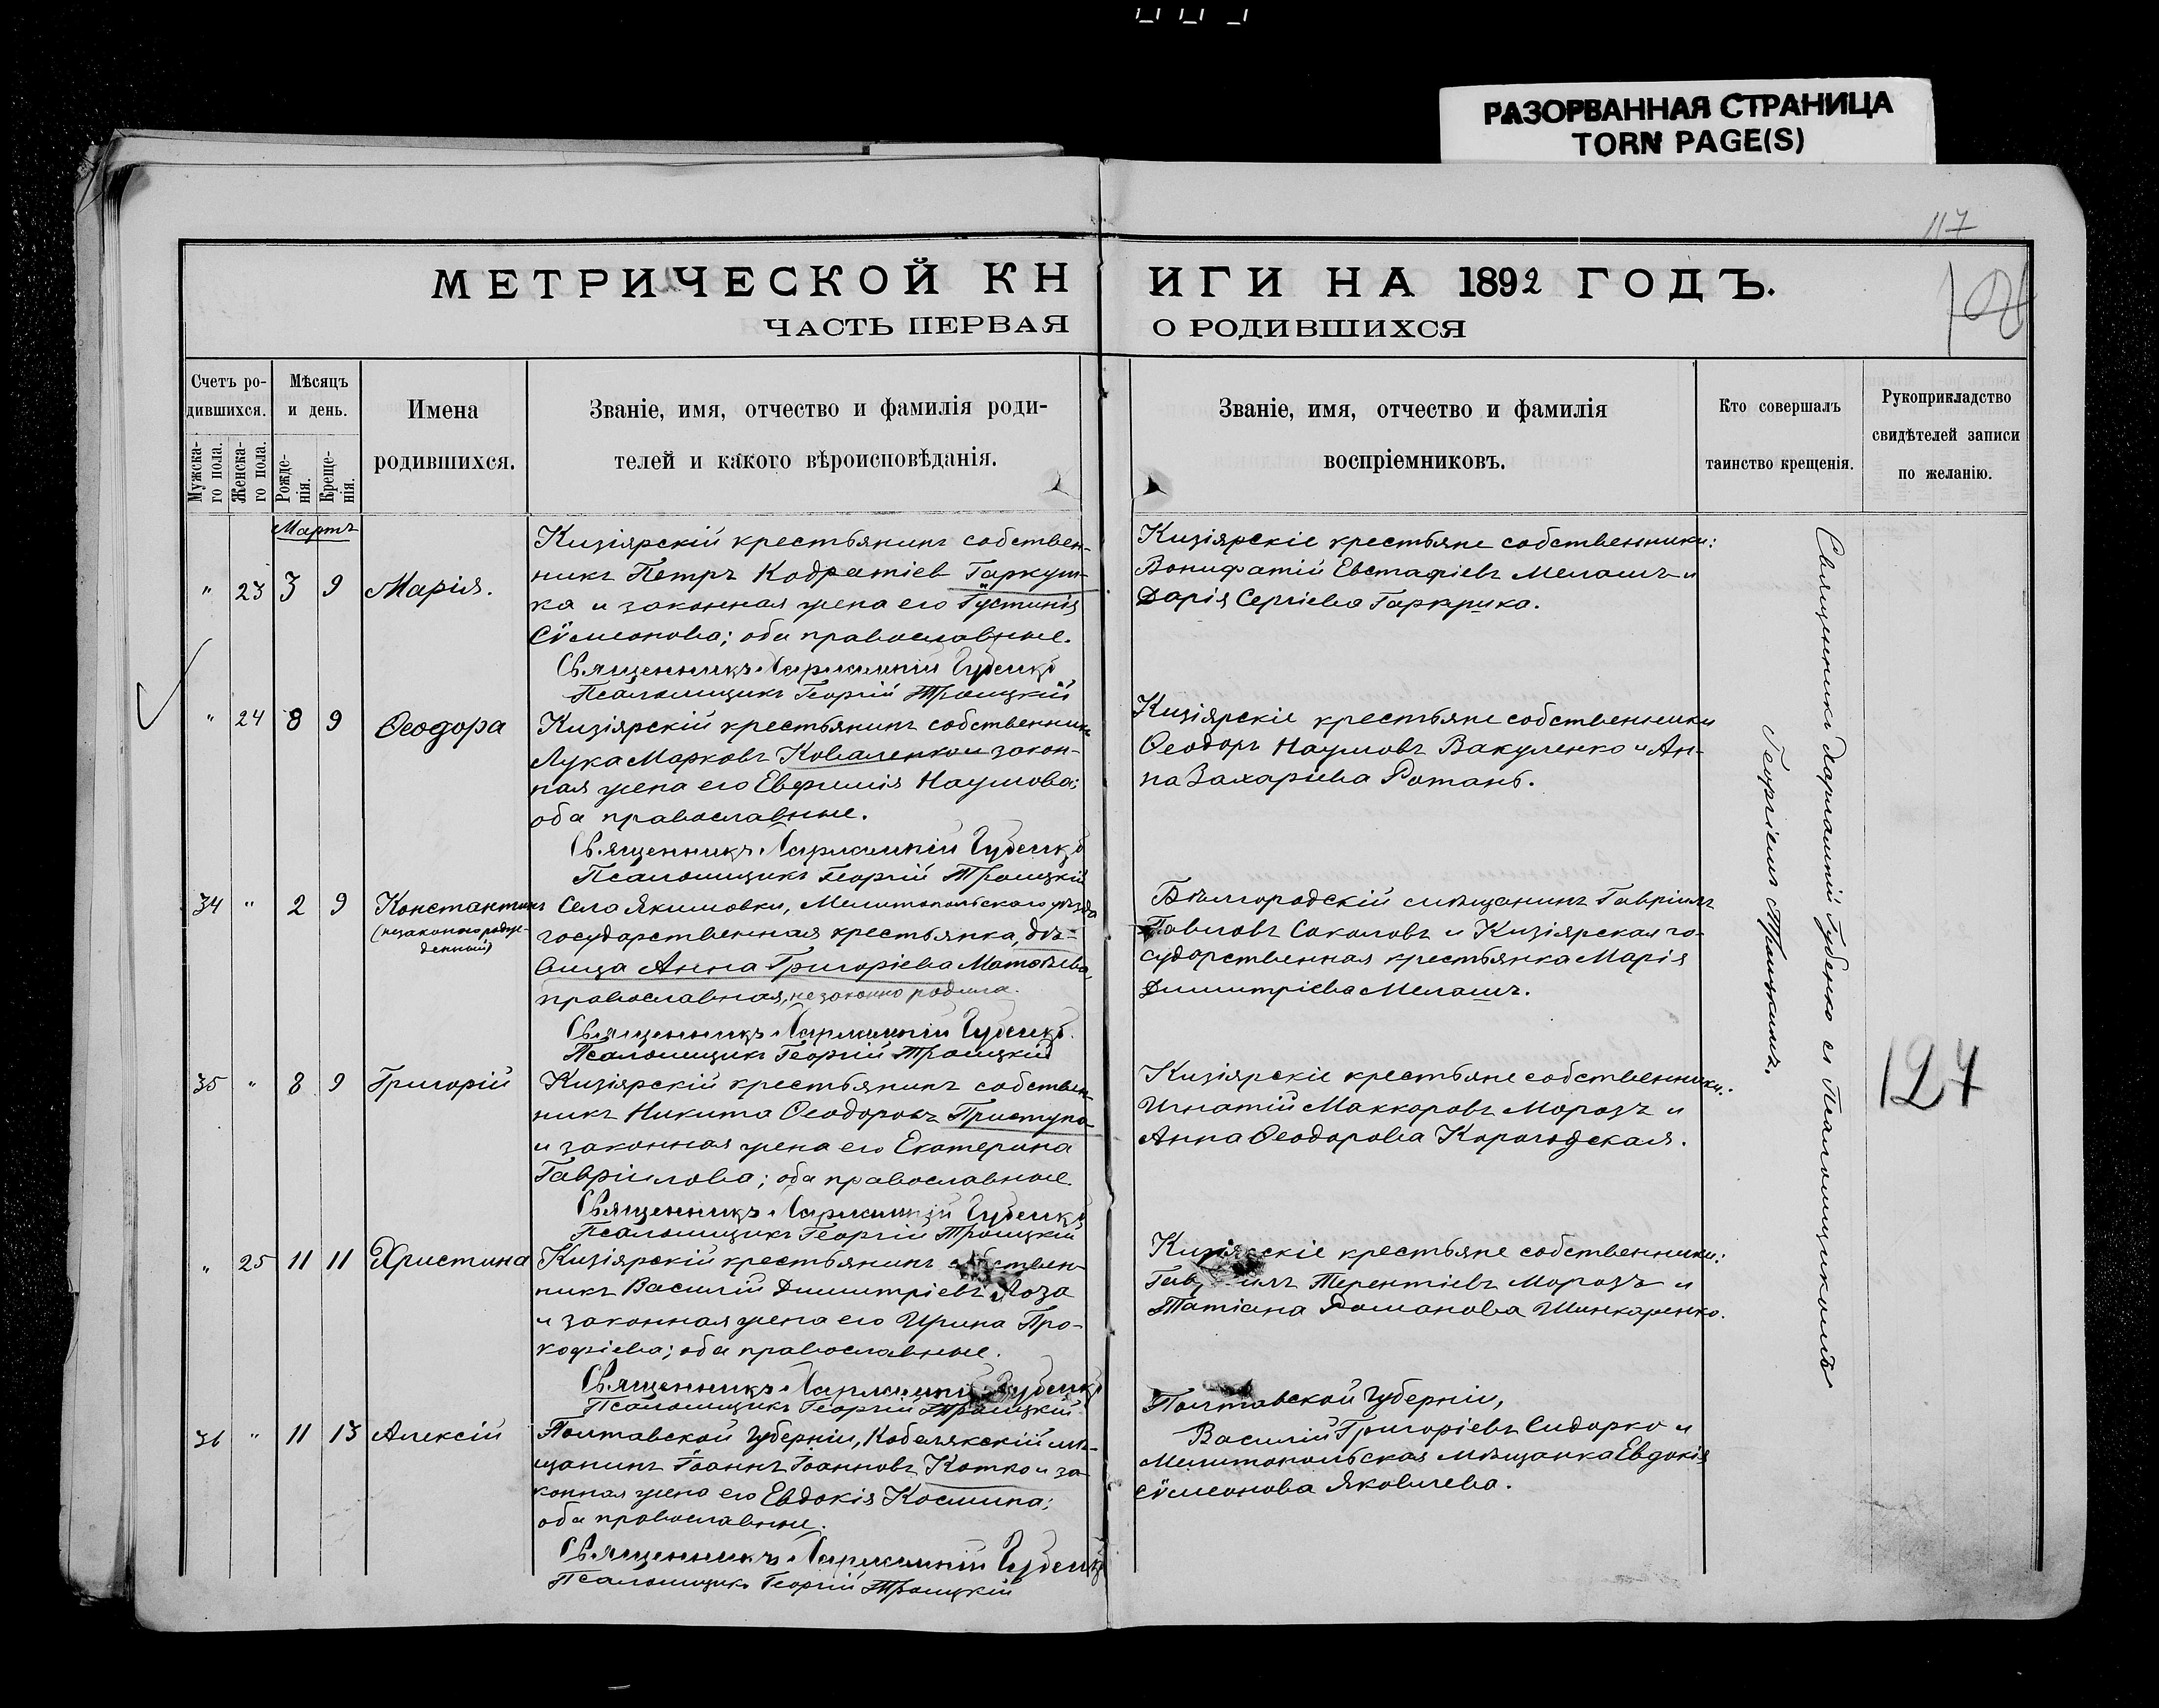 РАЗОРВАННАЯ СТРАНИЦА
TORN PAGE(S)
117
МЕТРИЧЕСКОЙ КНИГИ НА 1892 ГОДЪ.
ЧАСТЬ ПЕРВАЯ О РОДИВШИХСЯ
Счетъ ро-
дившихся.
Мужска-
го пола.
Женска-
го пола.
Мѣсяцъ
и день.
Рожде-
нія.
Креще-
нія.
Имена
родившихся.
Званіе, имя, отчество и фамилія роди-
телей и какого вѣроисповѣданія.
Званіе, имя, отчество и фамилія
воспріемниковъ.
Кто совершалъ
таинство крещенія.
Рукоприкладство
свидѣтелей записи
по желанію.
Мартъ
" 23 3 9 Марія.
Кизіярскій крестьянинъ собствен-
никъ Петръ Кодратіев Гаркуш-
ка и законная жена его Іустинія
Сѵмеонова; оба православные.
Священникъ Харлампій Губенко
Псаломщикъ Георгій Троицкій
Кизіярскіе крестьяне собственники:
Вонифатій Евстафіевъ Мелашъ и
Дарія Сергіева Гаркушка.
" 24 8 9 Ѳеодора
Кизіярскій крестьянинъ собственникъ
Лука Марковъ Коваленко и закон-
ная жена его Евфимія Наумова;
оба православные.
Священникъ Харлампій Губенко
Псаломщикъ Георгій Троицкій
Кизіярскіе крестьяне собственники
Ѳеодоръ Наумовъ Вакуленко и Ан-
на Захаріева Ротань.
34 " 2 9 Константинъ
(незаконнорож-
денный)
Села Якимовки, Мелитопольскаго уѣзда
государственная крестьянка, дѣ-
вица Анна Григоріева Матвѣева,
православная, незаконно родила.
Священникъ Харлампій Губенко
Псаломщикъ Георгій Троицкій
Бѣлгородскій мѣщанинъ Гавріилъ
Павловъ Соколовъ и Кизіярская го-
сударственная крестьянка Марія
Димитріева Мелашъ.
35 " 8 9 Григорій
Кизіярскій крестьянинъ собствен-
никъ Никита Ѳеодоровъ Приступа
и законная жена его Екатерина
Гавріилова; оба православные
Священникъ Харлампій Губенко
Псаломщикъ Георгій Троицкій
Кизіярскіе крестьяне собственники:
Игнатій Маккаровъ Морозъ и
Анна Ѳеодорова Корогодская.
" 25 11 11 Христина
Кизіярскій крестьянинъ собствен-
никъ Василій Димитріевъ Лоза
и законная жена его Ирина Про-
кофіева; оба православные.
Священникъ Харлампій Губенко
Псаломщикъ Георгій Троицкій
Кизіярскіе крестьяне собственники:
Гавріилъ Терентіевъ Морозъ и
Татіана Романова Шинкаренко.
36 " 11 13 Алексій
Полтавской Губерніи, Кобелякскій мѣ-
щанинъ Іоаннъ Іоанновъ Котко и за-
конная жена его Евдокія Космина;
оба православные.
Священникъ Харлампій Губенко
Псаломщикъ Георгій Троицкій
Полтавской Губерніи,
Василій Григоріевъ Сидорко и
Мелитопольская мѣщанка Евдокія
Сѵмеонова Яковлева.
Священникъ Харлампій Губенко съ Псаломщикомъ
Георгіемъ Троицкимъ.
124